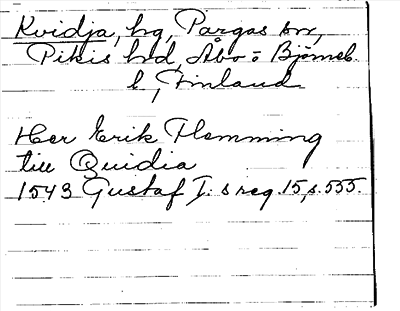 Kvidja, hg, Pargas sn,
Pikis hd, Åbo o Björneb.
l, Finland
Her Erik Flemming
till Quidia
1543 Gustaf I:s reg. 15, s. 555.